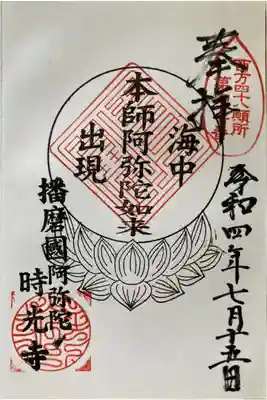 奉拝
西方四十八願所
令和四年七月十五日
海中
本師阿弥陀如来
出現
播磨國阿弥陀
時光寺